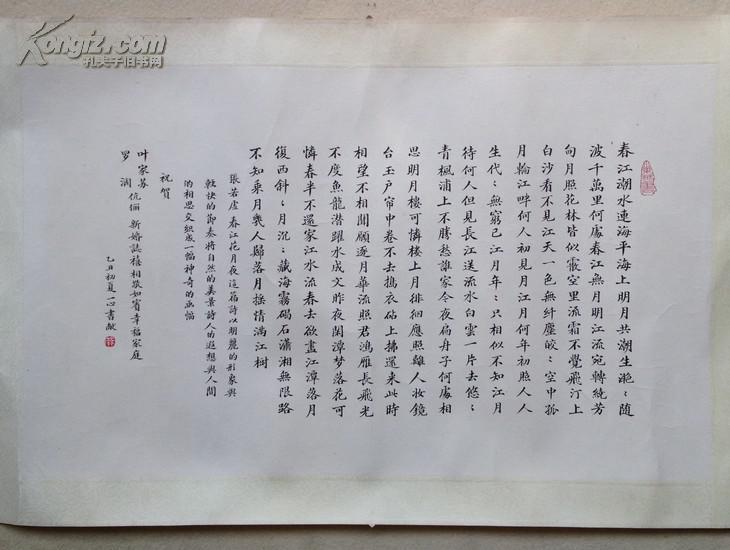 春江潮水連海平海上明月共潮生灧：随
波千萬里何處春江無月明江流宛轉繞芳
甸月照花林皆似霰空里流霜不覺飛汀上
白沙看不見江天一色無纤塵皎：空中孤
月輪江畔何人初見月江月何年初照人人
生代：無窮已江月年：只相似不知江月
待何人但見長江送流水白雲一片去悠：
青楓浦上不勝愁誰家今夜扁舟子何處相
思明月樓可憐樓上月徘徊應照離人妝鏡
台玉户帘中卷不去搗衣砧上拂還来此時
相望不相聞願逐月華流照君鴻雁長飛光
不度魚龍潜躍水成文昨夜閑潭梦落花可
憐春半不還家江水流春去欲盡江潭落月
復西斜：月沉：藏海霧碣石瀟湘無限路
不知乘月幾人歸落月摇情满江树
張若虚春江花月夜這篇詩以明麗的形象與
軽快的節奏將自然的美景詩人的遐想與人間
的相思交組成一幅神奇的画幅
祝賀
叶家芬
罗润 伉俪 新婚誌禧相敬如賓幸福家庭
乙丑初夏一心書献
Kongfz.com
孔夫子旧书网